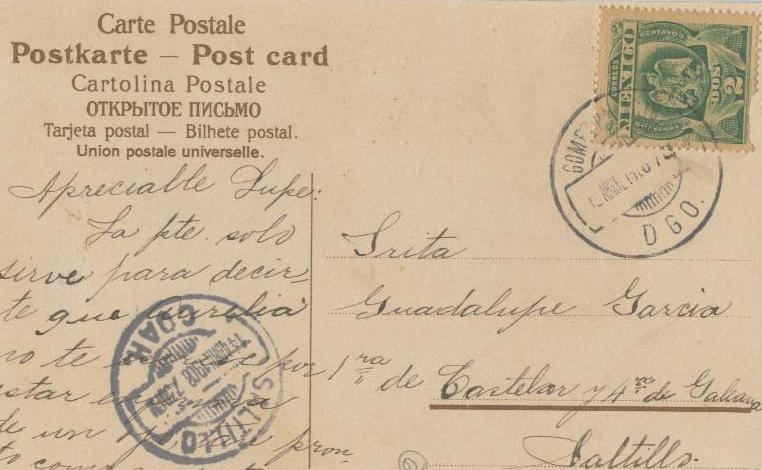 Carte Postale
Postkarte — Post card
Cartolina Postale
ОТКРЫТОЕ ПИСЬМО
Tarjeta postal — Bilhete postal.
Union postale universelle.
CORREOS
MEXICO
2 DOS
CENTAVOS
DGO.
Apreciable Lupe:
La pte. solo
sirve para decir-
te que Aurelia
no te escribe por
estar enferma
de un ojo, tan pron-
to como
COAH
SALTILLO
Srita
Guadalupe Garcia
1ra de Castelar y 4ta de Galeana
Saltillo.